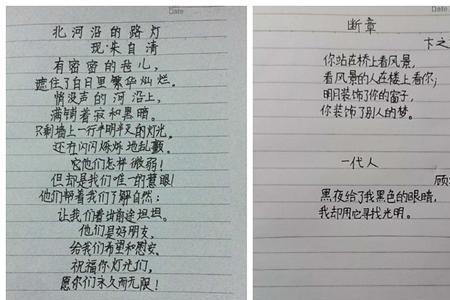 北河沿的路灯
现·朱自清
有密密的毡儿，
遮住了白日里繁华灿烂。
悄没声的河沿上，
满铺着寂和黑暗。
只剩墙上一行半明半灭的灯光，
还在闪闪烁烁地乱颤。
它们怎样微弱！
但却是我们唯一的慧眼！
他们帮着我们了解自然；
让我们看出前途坦坦。
他们是好朋友，
给我们希望和慰安。
祝福你灯光们，
愿你们永久而无限！
Date
断章
卞之
你站在桥上看风景，
看风景的人在楼上看你；
明月装饰了你的窗子，
你装饰了别人的梦。
一代人
顾
黑夜给了我黑色的眼睛，
我却用它寻找光明。